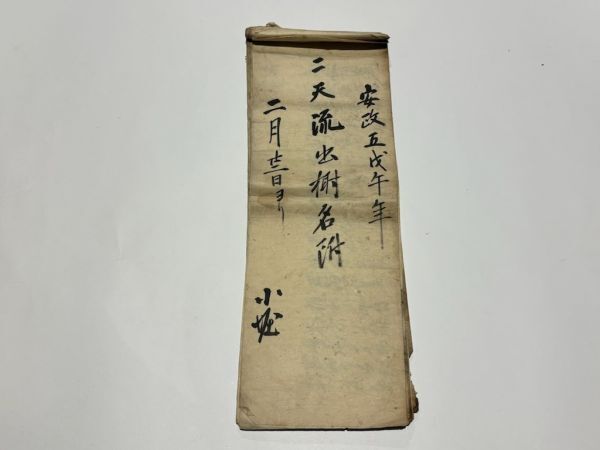 安政五戊午年
二天流出榭名附
二月廿三日ヨリ
小堀